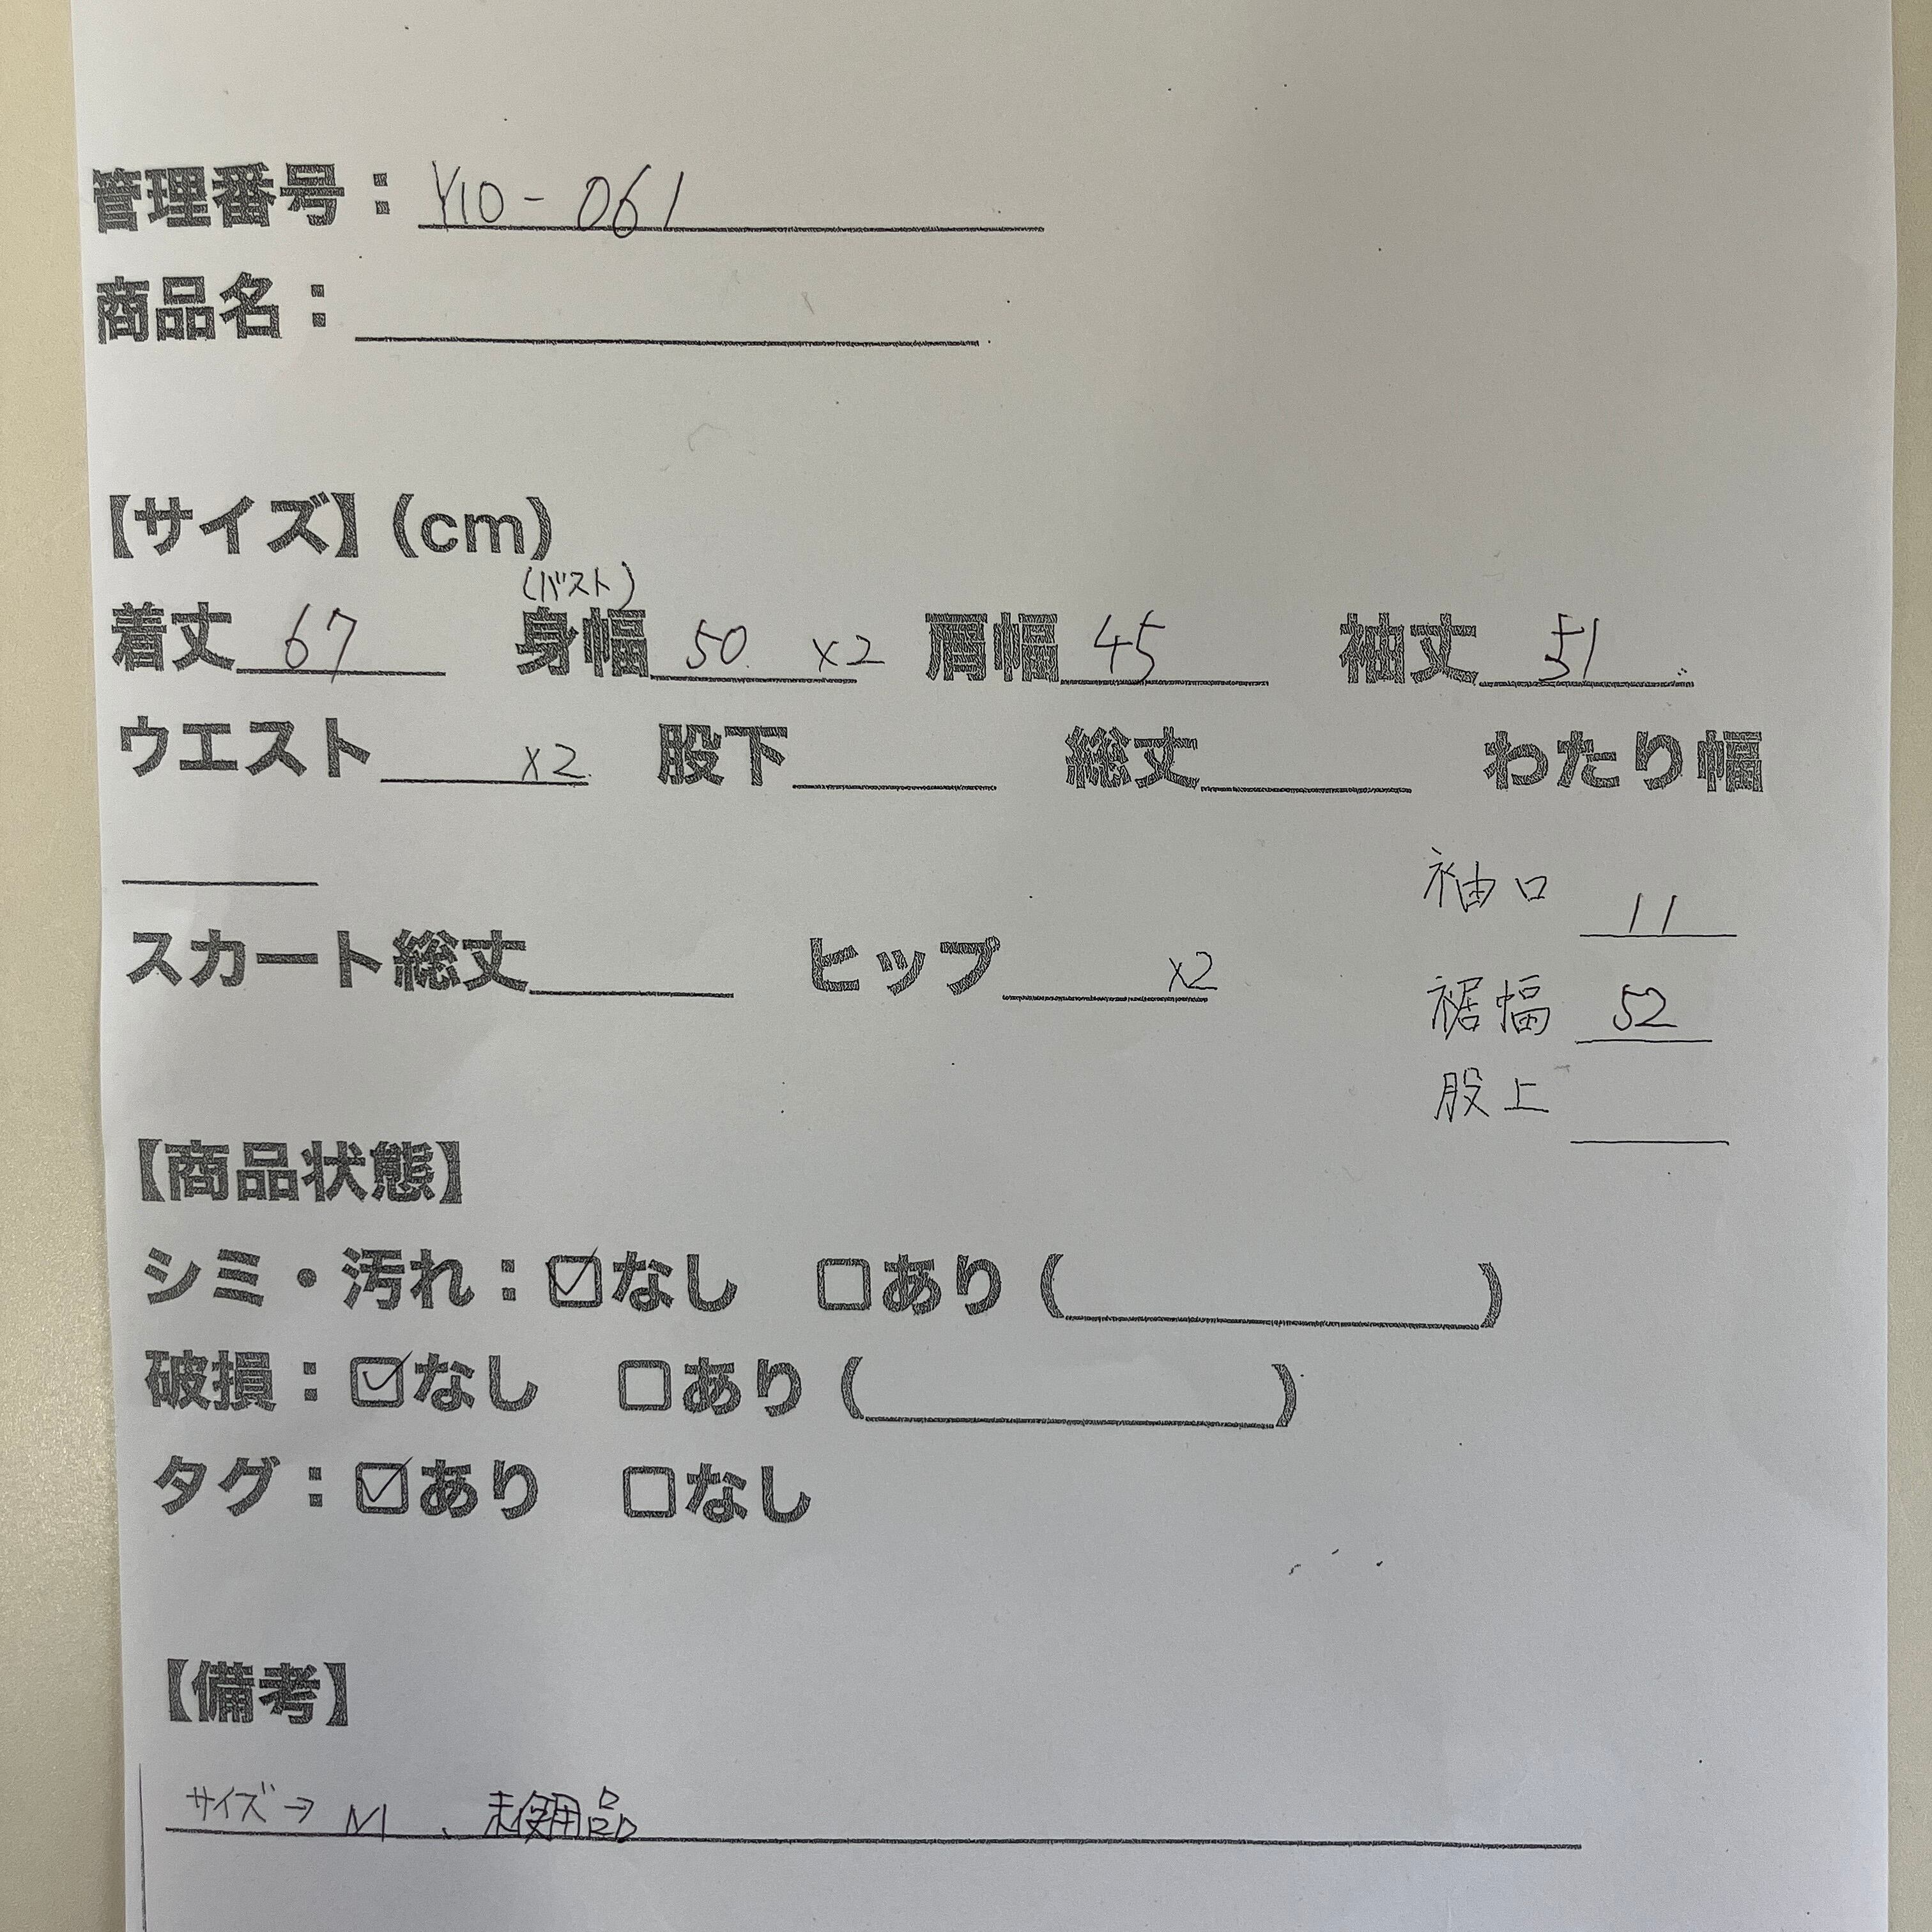 管理番号：Y10-061
商品名：
【サイズ】(cm)
(バスト)
着丈 67 身幅 50 x2 肩幅 45 袖丈 51
ウエスト x2 股下 総丈 わたり幅
袖口 11
スカート総丈 ヒップ x2
裾幅 52
股上
【商品状態】
シミ・汚れ：☑なし □あり ( )
破損：☑なし □あり ( )
タグ：☑あり □なし
【備考】
サイズ→M、未使用品